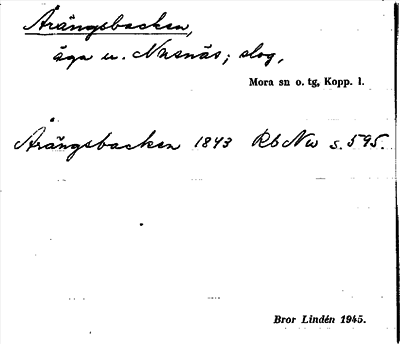 Årängsbacken,
äga u. Nusnäs; slog,
Mora sn o. tg, Kopp. l.
Årängsbacken 1843 Rb Nw s. 595.
Bror Lindén 1945.